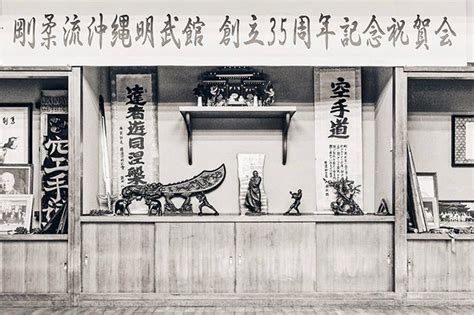 剛柔流沖縄明武館 創立35周年記念祝賀会
達者遊同涅槃
空手道
空手